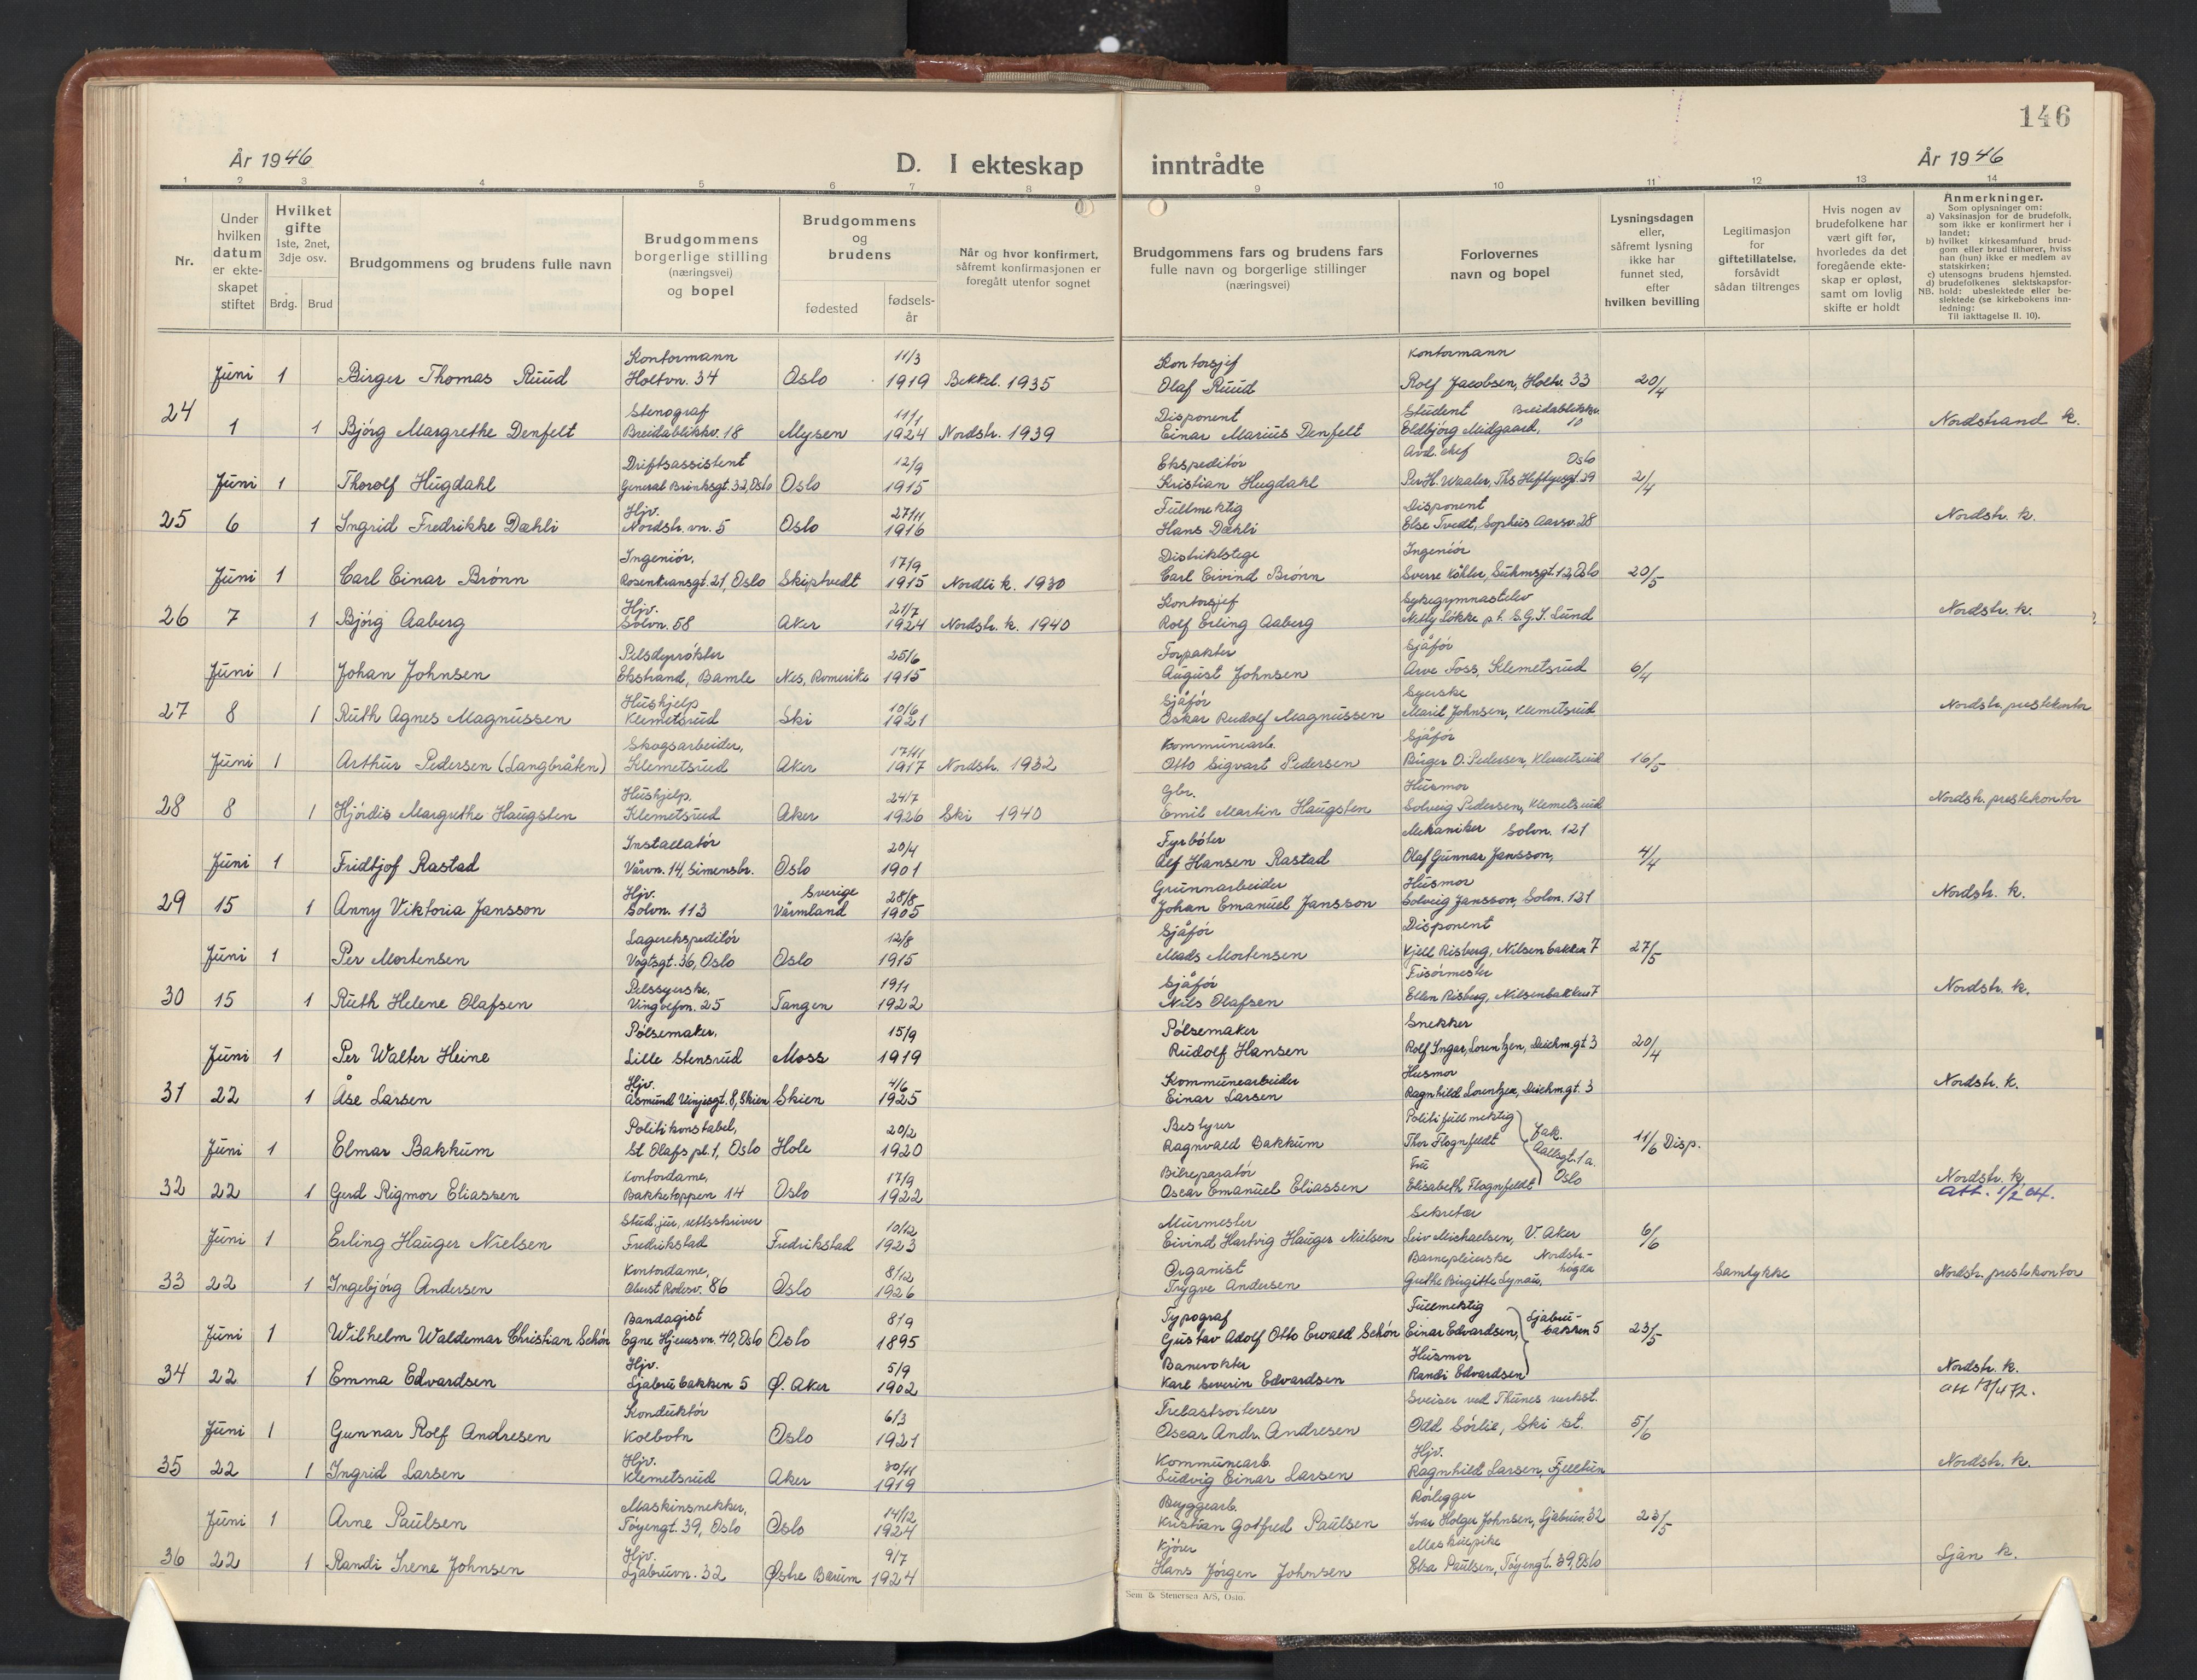 146
År 1946 D. I ekteskap inntrådte År 1946
1 2 3 4 5 6 7 8 9 10 11 12 13 14
Nr.
Under hvilken datum er ekteskapet stiftet
Hvilket gifte 1ste, 2net, 3dje osv. Brdg. Brud
Brudgommens og brudens fulle navn
Brudgommens borgerlige stilling (næringsvei) og bopel
Brudgommens og brudens fødested fødselsår
Når og hvor konfirmert, såfremt konfirmasjonen er foregått utenfor sognet
Brudgommens fars og brudens fars fulle navn og borgerlige stillinger (næringsvei)
Forlovernes navn og bopel
Lysningsdagen eller, såfremt lysning ikke har funnet sted, efter hvilken bevilling
Legitimasjon for giftetillatelse, forsåvidt sådan tiltrenges
Hvis nogen av brudefolkene har vært gift før, hvorledes da det foregående ekteskap er opløst, samt om lovlig skifte er holdt
Anmerkninger.
Som oplysninger om:
a) Vaksinasjon for de brudefolk, som ikke er konfirmert her i landet;
b) hvilket kirkesamfund brudgom eller brud tilhører, hviss han (hun) ikke er medlem av statskirken;
c) utensogns brudens hjemsted.
d) brudefolkenes slektskapsforhold: ubeslektede eller beslektede (se kirkebokens innledning:
NB.
Til iakttagelse II. 10).
Kontormann 11/3 Kontorsjef Kontormann
Juni 1 Birger Thomas Ruud Holtvn. 34 Oslo 1919 Bekkel. 1935 Olaf Ruud Rolf Jacobsen, Holtv. 33 20/4
24 Stenograf 11/1 Disponent Student Breidablikkv.
1 1 Bjørg Margrethe Denfelt Breidablikkv. 18 Mysen 1924 Nordstr. 1939 Einar Marius Denfelt Eldbjørg Midgaard, 10 Nordstrand k.
Driftsassistent 12/9 Ekspeditør Avd. sjef Oslo
Juni 1 Thorolf Hugdahl General Birchsgt. 32, Oslo Oslo 1915 Kristian Hugdahl Per H. Waaler, Ths Heftyesgt. 29 2/4
Hjv. 27/11 Fullmektig Disponent
25 6 1 Ingrid Fredrikke Dæhli Nordstr. vn. 5 Oslo 1916 Hans Dæhli Else Tvedt, Sophus Aarsv. 28 Nordstr. k.
Ingeniør, 17/9 Distriktslege Ingeniør
Juni 1 Carl Einar Brønn Rosenkransgt. 21, Oslo Skiptvedt 1915 Nordli k. 1930 Carl Eivind Brønn Sverre Köhler, Suhmsgt. 12, Oslo 20/5
Hjv. 21/7 Kontorsjef Sykegymnastelev
26 7 1 Bjørg Aaberg Solvn. 58 Aker 1924 Nordstr. k. 1940 Rolf Erling Aaberg Nelly Løkke p.t. S.G.I. Lund Nordstr. k.
Pelsdyrrøkter 25/6 Forpakter Sjåfør
Juni 1 Johan Johnsen Ekstrand, Bamle Nes, Romerike 1915 August Johnsen Arve Foss, Klemetsrud 6/4
Hushjelp 10/6 Sjåfør Syerske
27 8 1 Ruth Agnes Magnussen Klemetsrud Ski 1921 Oskar Rudolf Magnussen Marit Johnsen, Klemetsrud Nordstr. prestekontor
Skogsarbeider, 17/11 Kommunearb. Sjåfør
Juni 1 Arthur Pedersen (Langbråten) Klemetsrud Aker 1917 Nordstr. 1932 Otto Sigvart Pedersen Birger O. Pedersen, Klemetsrud 16/5
Hushjelp, 24/7 Gbr. Husmor
28 8 1 Hjørdis Margrethe Haugsten Klemetsrud Aker 1926 Ski 1940 Emil Martin Haugsten Solveig Pedersen, Klemetsrud Nordstr. prestekontor
Installatør 20/4 Fyrbøter Mekaniker Solvn. 121
Juni 1 Fridtjof Rastad Vårvn. 14, Simensbr. Oslo 1901 Alf Hansen Rastad Olaf Gunnar Jansson, 4/4
Hjv. Sverige 28/8 Grunnarbeider Husmor
29 15 1 Anny Viktoria Jansson Solvn. 113 Värmland 1905 Johan Emanuel Jansson Solveig Jansson, Solvn. 121 Nordstr. k.
Lagerekspeditør 12/8 Sjåfør Disponent
Juni 1 Per Mortensen Vogtsgt. 36, Oslo Oslo 1915 Mads Mortensen Kjell Risberg, Nilsenbakken 7 27/5
Pelssyerske, 19/1 Sjåfør Frisørmester
30 15 1 Ruth Helene Olafsen Vingolfvn. 25 Tangen 1922 Nils Olafsen Ellen Risberg, Nilsenbakken 7 Nordstr. k.
Pølsemaker, 15/9 Pølsemaker Snekker
Juni 1 Per Walter Heine Lille Stensrud Moss 1919 Rudolf Hansen Rolf Ingar Lorentzen, Deichm.gt. 3 20/4
Hjv. 4/6 Kommunearbeider Husmor
31 22 1 Åse Larsen Åsmund Vinjesgt. 8, Skien Skien 1925 Einar Larsen Ragnhild Lorentzen, Deichm.gt. 3 Nordstr. k.
Politikonstabel, 20/2 Bestyrer Politifullmektig Jak.
Juni 1 Elmar Bakkum St. Olafs pl. 1, Oslo Hole 1920 Ragnvald Bakkum Thor Flognfeldt Aallsgt. 1 a. 11/6 Disp.
Kontordame, 17/9 Bilreparatør Fru Oslo
32 22 1 Gerd Rigmor Eliassen Bakketoppen 14 Oslo 1922 Oscar Emanuel Eliassen Elisabeth Flognfeldt Nordstr. k.
Att. 1/2 84.
Stud. jur, rettsskriver 10/12 Murmester Sekretær
Juni 1 Erling Hauger Nielsen Fredrikstad Fredrikstad 1923 Eivind Hartvig Hauger Nielsen Leiv Michaelsen, V. Aker 6/6
Kontordame, 8/12 Organist Barnepleierske Nordstr.-høgda
33 22 1 Ingebjørg Andersen Oberst Rodesv. 86 Oslo 1926 Trygve Andersen Grethe Birgitte Lynau, Samtykke Nordstr. prestekontor
Bandagist 8/9 Typograf Fullmektig Ljabru-
Juni 1 Wilhelm Waldemar Christian Schön Egne Hjemsvn. 40, Oslo Oslo 1895 Gustav Adolf Otto Ewald Schön Einar Edvardsen, bakken 5 23/5
Hjv. 5/9 Banevokter Husmor
34 22 1 Emma Edvardsen Ljabrubakken 5 Ø. Aker 1902 Karl Severin Edvardsen Randi Edvardsen Nordstr. k.
Att 17/4 72.
Konduktør 6/3 Trelastsorterer Sveiser ved Thunes verkst.
Juni 1 Gunnar Rolf Andresen Kolbotn Oslo 1921 Oscar Andr. Andresen Odd Sørlie, Ski st. 5/6
Hjv. 30/11 Kommunearb. Hjv.
35 22 1 Ingrid Larsen Klemetsrud Aker 1919 Ludvig Einar Larsen Ragnhild Larsen, Fjelltun Nordstr. k.
Maskinsnekker, 14/12 Bryggearb. Rørlegger
Juni 1 Arne Paulsen Tøyengt. 39, Oslo Oslo 1924 Kristian Gotfred Paulsen Ivar Holger Johnsen, Ljabruv. 32 23/5
Hjv. 9/7 Kjører Maskinpike
36 22 1 Randi Irene Johnsen Ljabruvn. 32 Østre Bærum 1924 Hans Jørgen Johnsen Elsa Paulsen, Tøyengt. 39, Oslo Ljan k.
Sem & Stenersen A/S, Oslo.